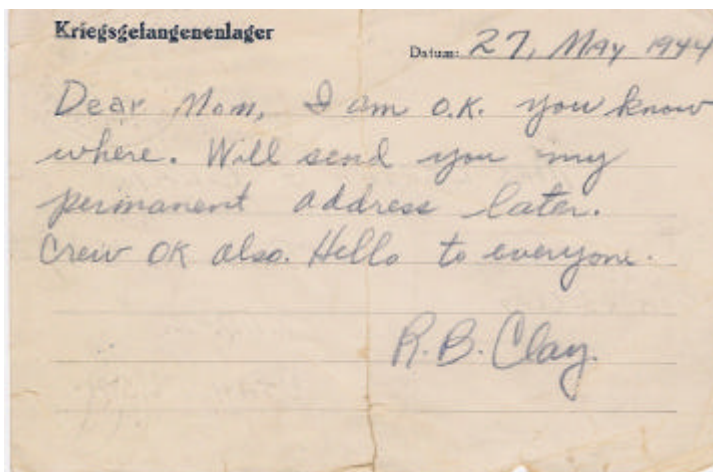 Kriegsgefangenenlager
Datum: 27, May 1944
Dear Mom, I am O.K. you know
where. Will send you my
permanent address later.
Crew OK also. Hello to everyone.
R.B. Clay.